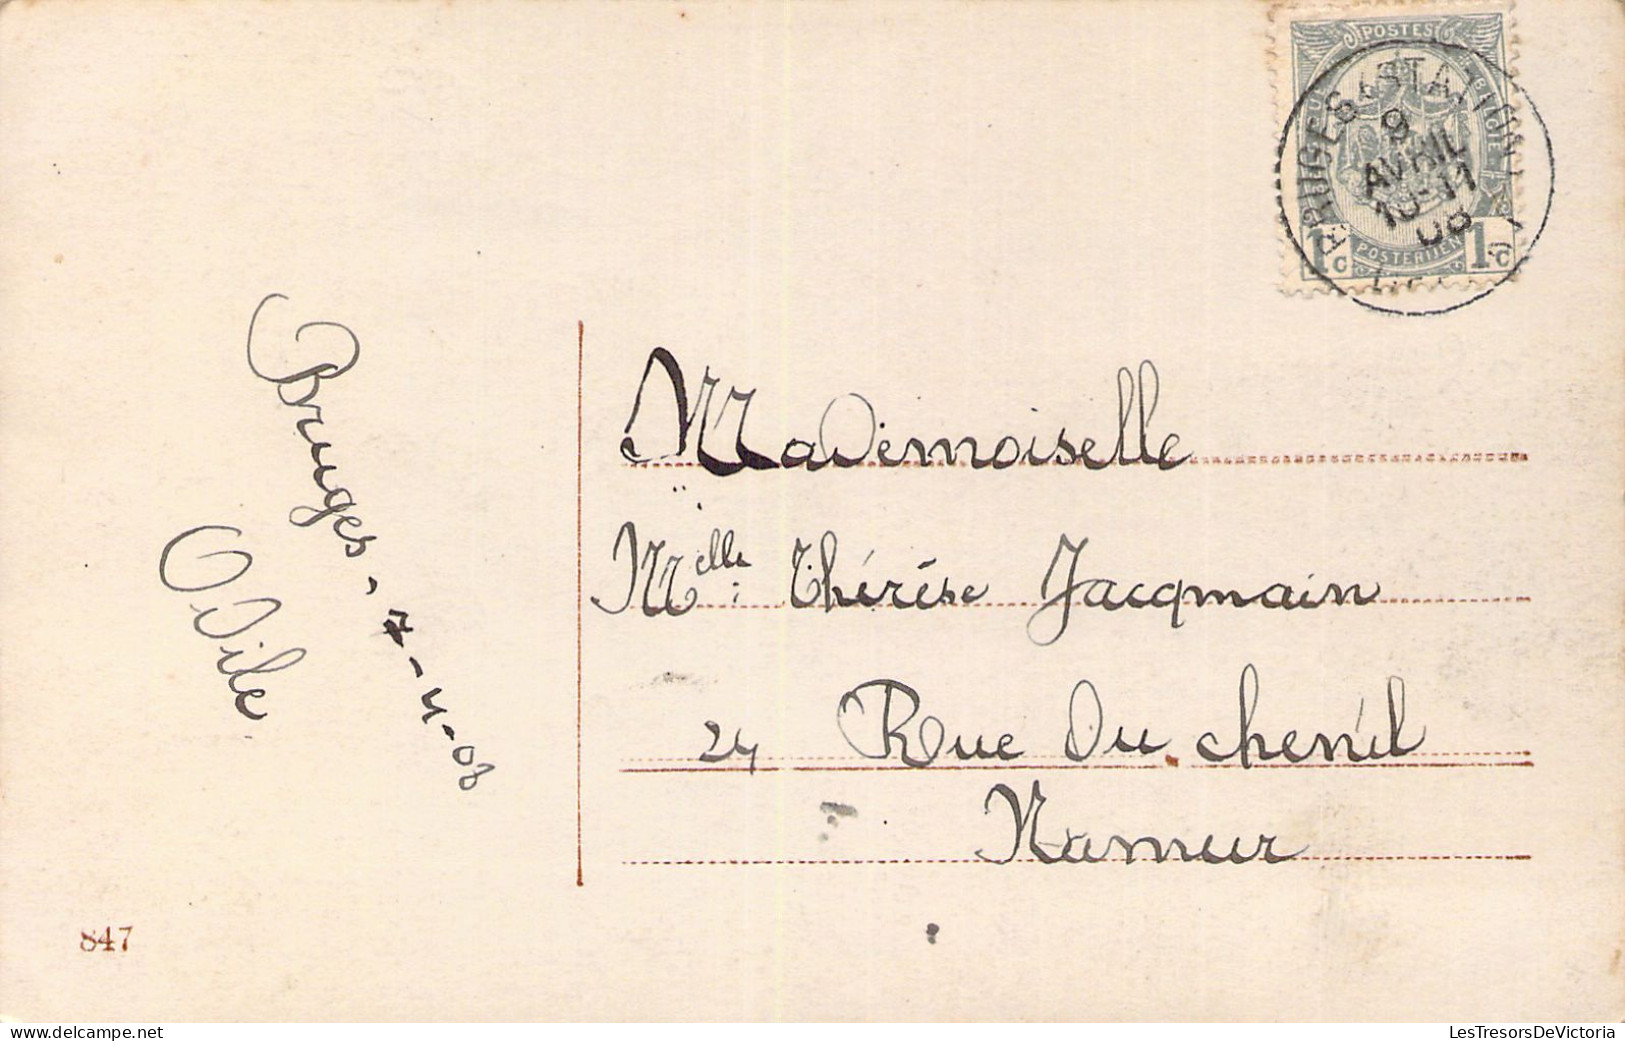 POSTES
BRUGES (STATION)
8
AVRIL
10-11
08
1c POSTERIJEN 1c
Bruges - 7-4-08
Odile
Mademoiselle
Melle: Thérèse Jacqmain
24 Rue du chenil
Namur
847
LesTresorsDeVictoria